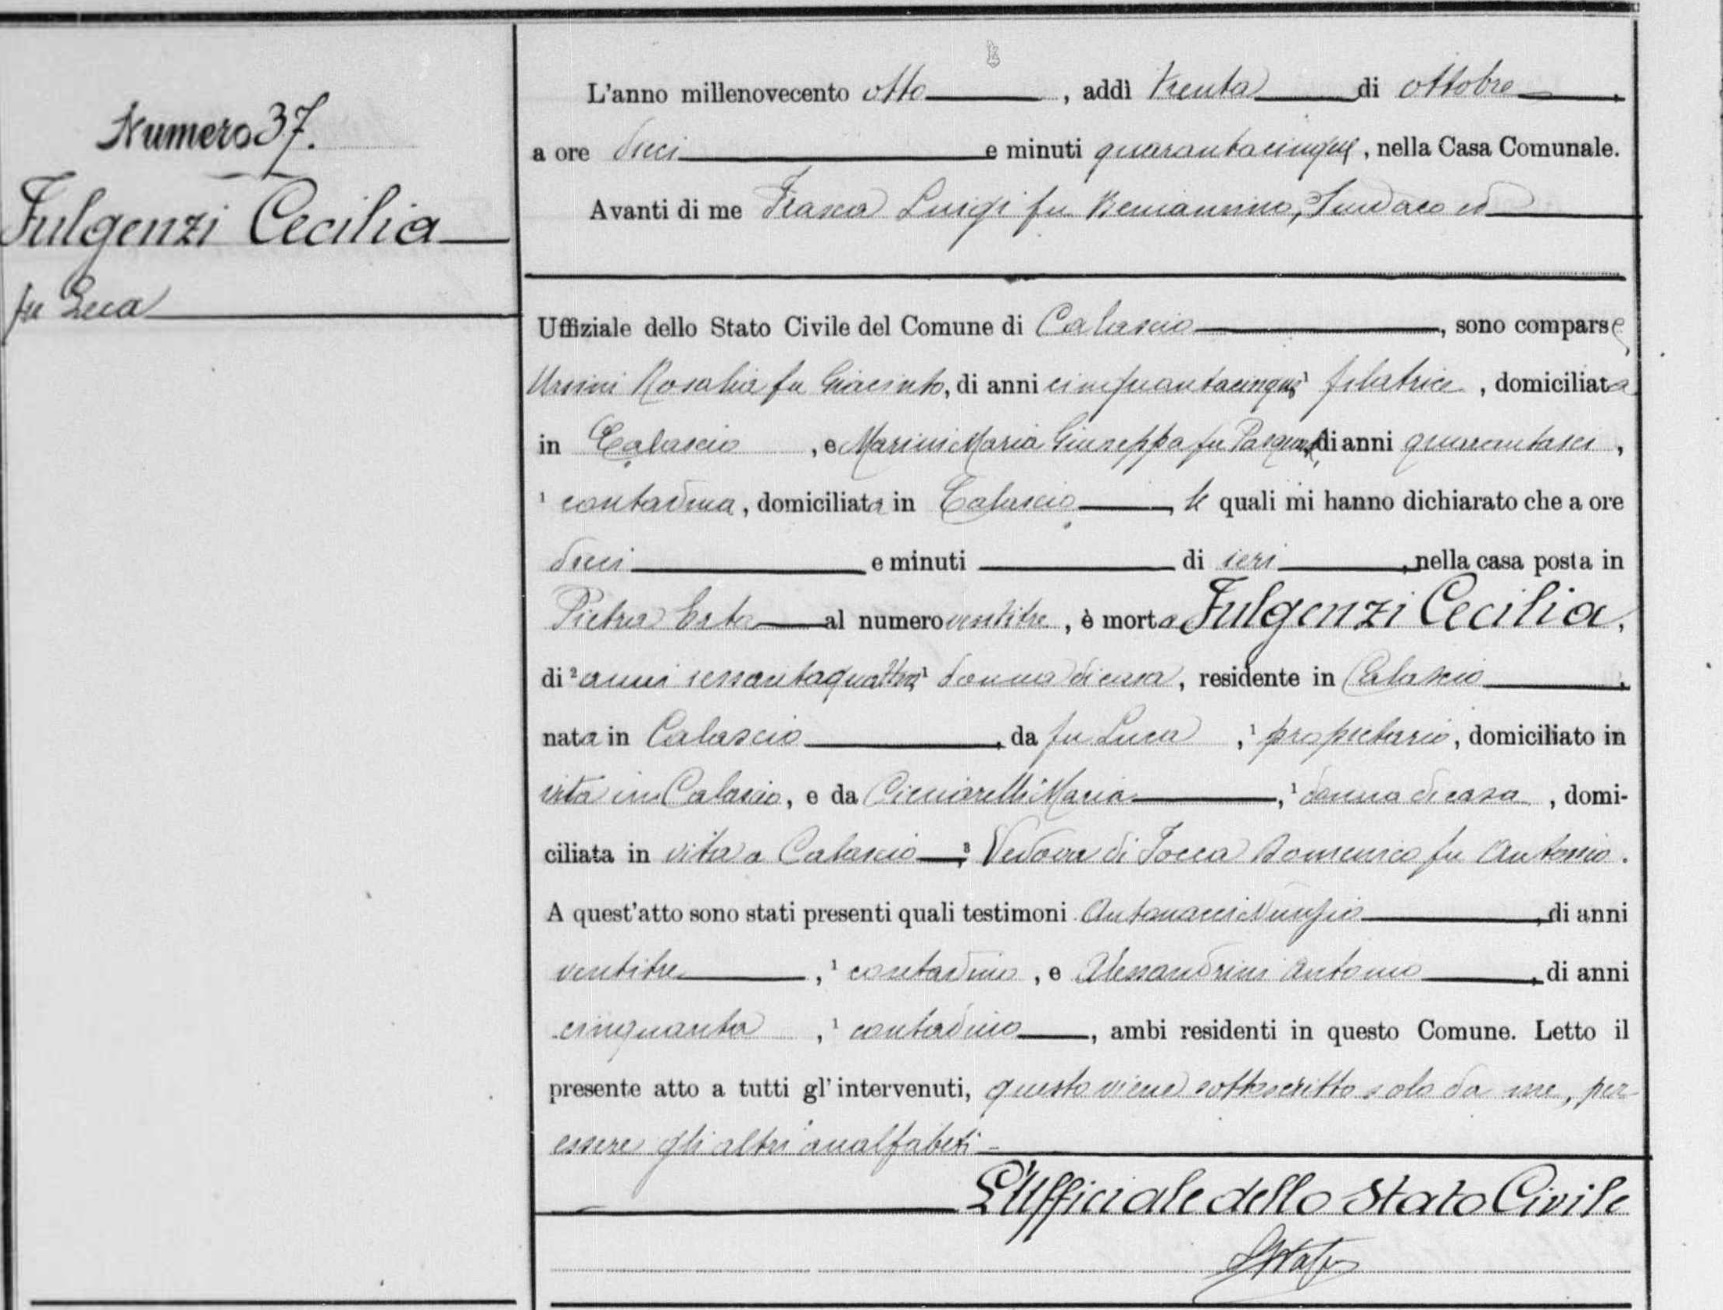 Numero 37.
Fulgenzi Cecilia
fu Luca
L'anno millenovecento otto, addì trenta di ottobre,
a ore dieci e minuti quarantacinque, nella Casa Comunale.
Avanti di me Frasca Luigi fu Beniamino, Sindaco ed
Uffiziale dello Stato Civile del Comune di Calascio, sono comparse
Ursini Rosalia fu Giacinto, di anni cinquantacinque, ¹ filatrice, domiciliata
in Calascio, e Marini Maria Giuseppa fu Pasquale, di anni quarantasei,
¹ contadina, domiciliata in Calascio, le quali mi hanno dichiarato che a ore
dieci e minuti di ieri, nella casa posta in
Pietra al numero ventitre, è morta Fulgenzi Cecilia,
di ² anni sessantaquattro, ¹ donna di casa, residente in Calascio,
nata in Calascio, da fu Luca, ¹ proprietario, domiciliato in
vita in Calascio, e da Cicciarelli Maria, ¹ donna di casa, domi-
ciliata in vita a Calascio, ³ Vedova di Tocca Domenico fu Antonio.
A quest'atto sono stati presenti quali testimoni Antonacci Nunzio, di anni
ventitre, ¹ contadino, e Alessandrini Antonio, di anni
cinquanta, ¹ contadino, ambi residenti in questo Comune. Letto il
presente atto a tutti gl'intervenuti, questo viene sottoscritto solo da me, per
essere gli altri analfabeti -
L'Ufficiale dello Stato Civile